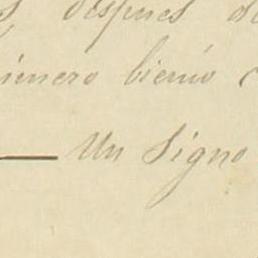 despues de
imero bienio
Un Signo